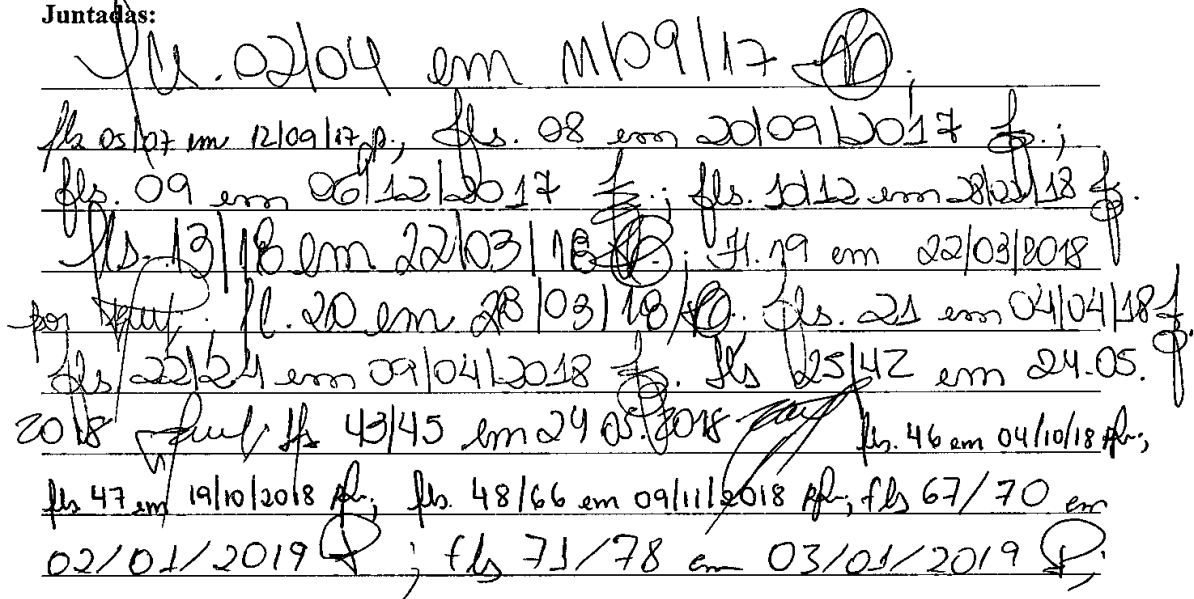 Juntadas:
fls. 02/04 em 11/09/17
fls 05/07 em 12/09/17 , fls. 08 em 20/09/2017 ;
fls. 09 em 06/12/2017 ; fls. 10/12 em 28/02/18
fls. 13/18 em 22/03/18 ; fl. 19 em 22/03/2018
por fl. 20 em 28/03/18 . fls. 21 em 04/04/18
fls 22/24 em 09/04/2018 . fls 25/42 em 24.05.
2018 fls 43/45 em 24 05.2018 fls. 46 em 04/10/18 ;
fls 47 em 19/10/2018 ; fls. 48/66 em 09/11/2018 ; fls 67/70 em
02/01/2019 ; fls 71/78 em 03/01/2019 ;